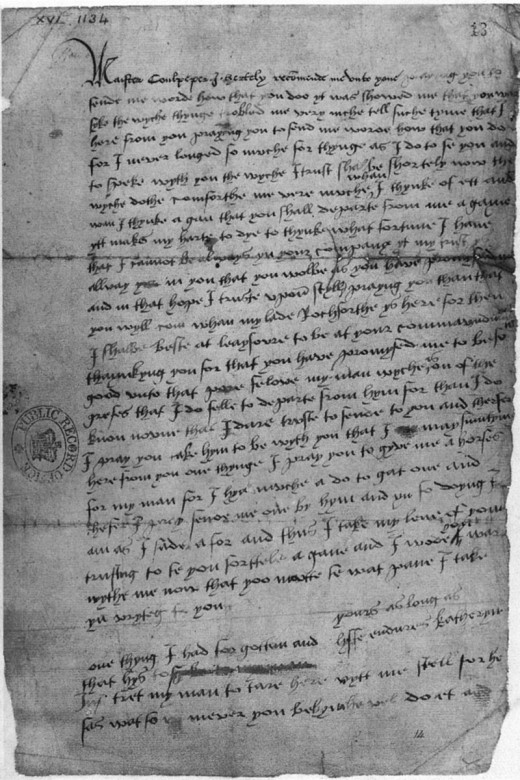 XVI. 1134
13
Maister Coulpeper I hertely recomende me unto youe praying you to
sende me worde how that you doo yt was showed me that you was
seke the wyche thynge trobled me very muche tell suche tyme that I
here from you praying you to send me worde how that you do
for I never longed so muche for thynge as I do to se you and
to speke wyth you the wyche I trust shal be shortely now the
wyche dothe comforthe me very muche whan I thynke of ett and
wan I thynke agan that you shall departe from me agane
ytt makes my harte to dye to thynke what fortune I have
that I cannot be always yn your company yt my trust ys
allway in you that you wolbe as you have promysed me
and in that hope I truste upon styll prayng you than that
you wyll com whan my lade Rochforthe ys here for then
I shalbe beste at leaysoure to be at your commaundment
thankyng you for that you have promysed me to be so
good unto that pore felowe my man wyche ys on of the
grefes that I do felle to departe from hym for than I do
know noone that I dare truste to sende to you and therfor
I pray you take hym to be wyth you that I may sumtym
here from you one thynge I pray you to gyve me a horse
for my man for I hyd muche a do to gat one and
therfer I pray sende me one by hym and yn so doying I
am as I sade afor and thus I take my leve of you
trusting to se you shorttele agane and I wode you was
wythe me now that yoo maitte se wat pane I take
yn wryteg to you
yours as long as
lyffe endures Katheryn
one thyng I had forgotten and
that hys to
tret my man to tare here wytt me stell for he
sas wat so mever you bed hym he wel do et and
14
PUBLIC RECORD OFFICE